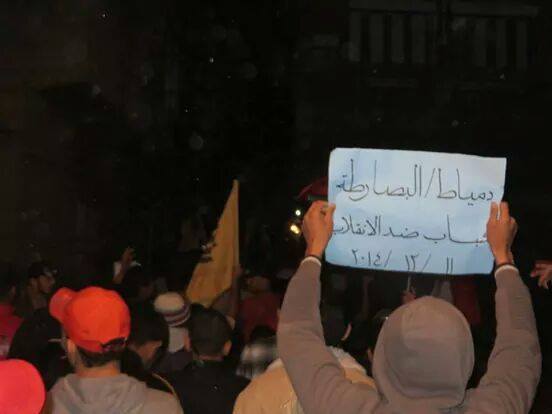 دمياط/البصارطة
شباب ضد الانقلاب
٢٠١٤/١٢/